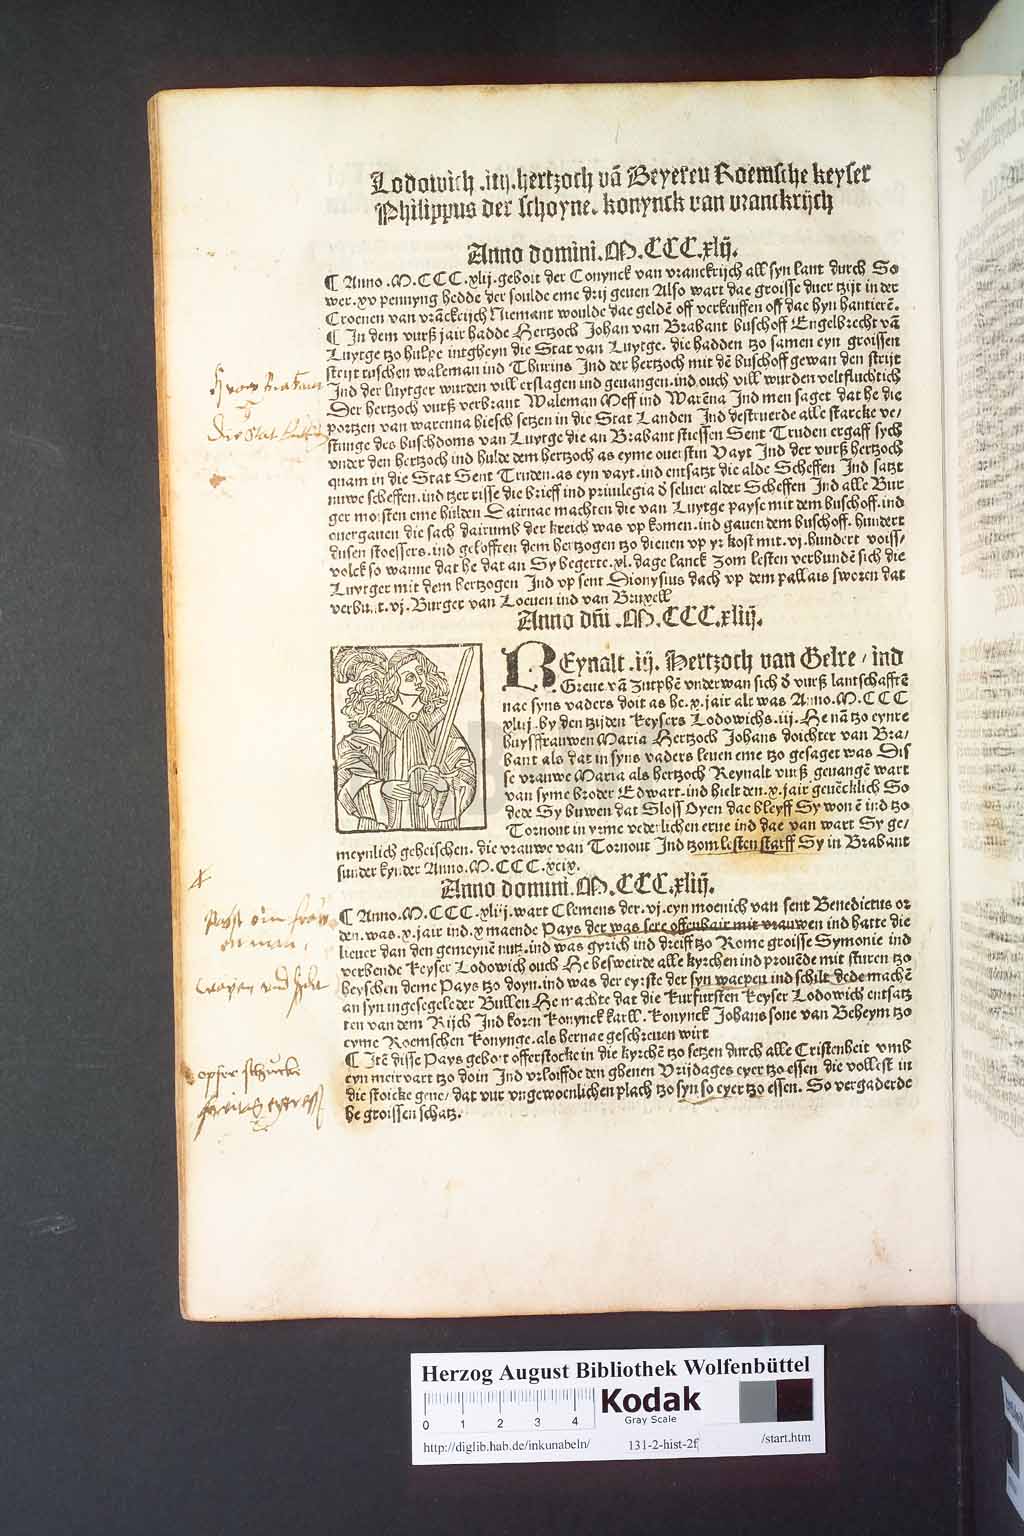 Lodowich .iiij. hertzoch vā Beyeren Roemsche keyser
Philippus der schoyne. konynck van vranckrijch
Anno domini .M.CCC.xlij.
¶ Anno .M.CCC.xlij. geboit der Conynck van vranckrijch all syn lant durch So
wer .xv pennyng hedde der soulde eme drij geuen Also wart dae groisse duer tzijt in der
Croenen van vrāckrijch Niemant woulde dae geldē off verkeuffen off dae hyn hantierē.
¶ In dem vurß jair hadde Hertzoch Johan van Brabant buschoff Engelbrecht vā
Luytge tzo hulpe intgheyn die Stat van Luytge. die hadden tzo samen eyn groissen
strijt tuschen waleman ind Thurins Ind der hertzoch mit dē buschoff gewan den strijt
Ind der luytger wurden vill erslagen ind geuangen. ind ouch vill wurden veltfluchtich
Der hertzoch vurß verbrant Waleman Meff ind Warēna Ind men saget dat he die
portzen van warenna hiesch setzen in die Stat Landen Ind destruerde alle starcke ve/
stunge des buschdoms van Luytge die an Brabant stiessen Sent Truden ergaff sych
vnder den hertzoch ind hulde dem hertzoch as eyme ouerstin Vayt Ind der vurß hertzoch
quam in die Stat Sent Truden. as eyn vayt. ind entsatzt die alde Scheffen Ind satzt
nuwe scheffen. ind tzer risse die brieff ind priuilegia d seluer alder Scheffen Ind alle Bur
ger moisten eme hulden Dairnae machten die van Luytge payse mit dem buschoff. ind
ouergauen die sach dairumb der kreich was vp komen. ind gauen dem buschoff. hundert
dusen stoessers. ind geloefften dem hertzogen tzo dienen vp yr kost mit .vj. hundert voiss/
volck so wanne dat he dat an Sy begerte .xl. dage lanck Zom lesten verbundē sich die
Luytger mit dem hertzogen Ind vp sent Dionysius dach vp dem pallais sworen dat
.vj. Burger van Loeuen ind van Bruxell
Anno dn̄i .M.CCC.xliij.
REynalt .iij. Hertzoch van Gelre / ind
Greue vā Zutphē vnderwan sich d vurß lantschafftē
nae syns vaders doit as he .x. jair alt was Anno .M.CCC
xliij. by den tzijden keysers Lodowichs .iij. He nā tzo eynre
huysfrauwen Maria Hertzoch Johans doichter van Bra/
bant als dat in syns vaders leuen eme tzo gesaget was Dis
se vrauwe Maria als hertzoch Reynalt vurß geuangē wart
van syme broder Edwart. ind hielt den .x. jair geuēcklich So
dede Sy buwen dat Sloss Oyen dae bleyff Sy wonē ind tzo
Tornout in yrme vederlichen erue ind dae van wart Sy ge/
meynlich geheischen. die vrauwe van Tornout Ind tzom lesten starff Sy in Brabant
sunder kynder Anno .M.CCC.xcix.
Anno domini .M.CCC.xliij.
¶ Anno .M.CCC.xliij. wart Clemens der .vj. eyn moenich van sent Benedictus or
den. was .x. jair ind .x maende Pays der was sere offenbair mit vrauwen ind hatte die
lieuer dan den gemeynē nutz. ind was gyrich ind dreiff tzo Rome groisse Symonie ind
verbende keyser Lodowich ouch He besweirde alle kyrchen ind prouēde mit sturen tzo
heyschen deme Pays tzo doyn. ind was der eyrste der syn waepen ind schilt dede machē
an syn ingesegele der Bullen He machte dat die Kurfursten keyser Lodowich entsatz
ten van dem Rijch Ind koren konynck karll. konynck Johans sone van Beheym tzo
eyme Roemschen konynge. als hernae geschreuen wirt
¶ Itē disse Pays gebort offerstocke in die kyrchē tzo setzen durch alle Cristenheit vmb
eyn meirvart tzo doin Ind vrloiffde den ghenen Vrijdages eyer tzo essen die vollest in
die stoicke gene / dat vur vngewoenlichen plach tzo syn so eyer tzo essen. So vergaderde
he groissen schatz.
die Stat
wapen und schilt
opfer
Herzog August Bibliothek Wolfenbüttel
Kodak
Gray Scale
0 1 2 3 4
http://diglib.hab.de/inkunabeln/ 131-2-hist-2f /start.htm